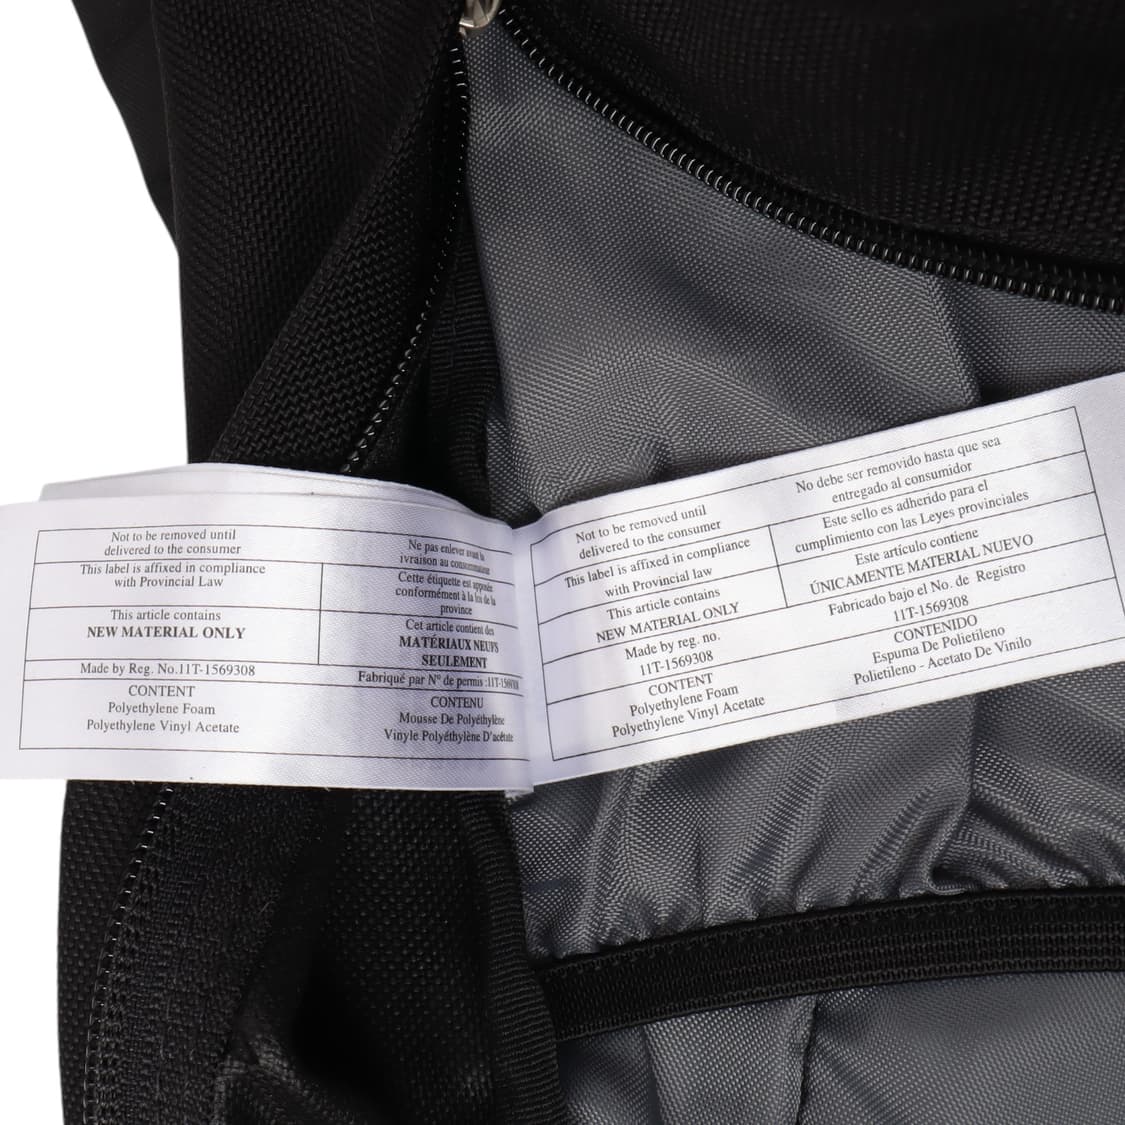 Not to be removed until
delivered to the consumer
Ne pas enlever avant la
ivraison au consommateur
This label is affixed in compliance
with Provincial Law
Cette étiquette est apposée
conformément à la loi de la
province
This article contains
NEW MATERIAL ONLY
Cet article contient des
MATÉRIAUX NEUFS
SEULEMENT
Made by Reg. No.11T-1569308
Fabriqué par N° de permis :11T-1569308
CONTENT
Polyethylene Foam
Polyethylene Vinyl Acetate
CONTENU
Mousse De Polyéthylène
Vinyle Polyéthylène D'acétate
Not to be removed until
delivered to the consumer
No debe ser removido hasta que sea
entregado al consumidor
This label is affixed in compliance
with Provincial law
Este sello es adherido para el
cumplimiento con las Leyes provinciales
This article contains
NEW MATERIAL ONLY
Este artículo contiene
ÚNICAMENTE MATERIAL NUEVO
Made by reg. no.
11T-1569308
Fabricado bajo el No. de Registro
11T-1569308
CONTENT
Polyethylene Foam
Polyethylene Vinyl Acetate
CONTENIDO
Espuma De Polietileno
Polietileno - Acetato De Vinilo